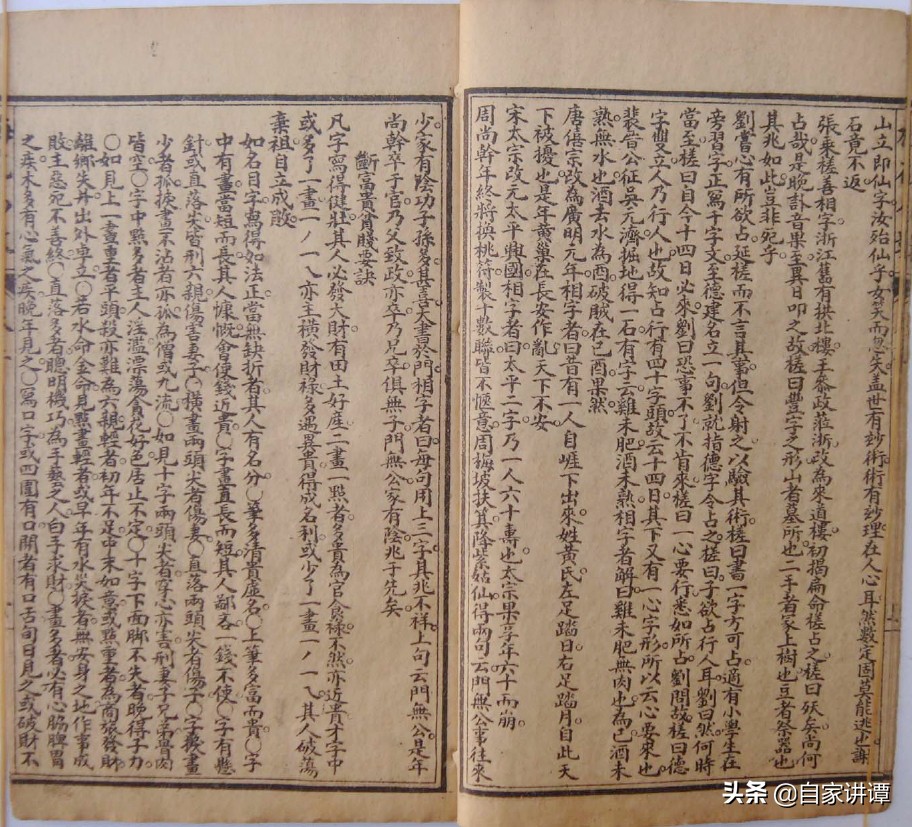 山立即仙字汝殆仙子女笑而忽失蓋世有妙術術有妙理在人心耳然數定固莫能逃也謝
石竟不返
張乘槎善相字浙江舊有拱北樓王參政蒞浙改為來遠樓初揭扁命槎占之槎曰殃矣尚何
占哉是晚卦音果至異日叩之故槎曰豐字之形山者墓所也二丰者冢上樹也豆者祭器也
其兆如此豈非冤乎
劉嘗心有所欲占延槎而不言其事但令射之以驗其術槎曰書一字方可占適有小學生在
旁習字正寫千字文至德建名立一句劉就指德字令占之槎曰子欲占行人耳劉曰然何時
當至槎曰自今十四日必來劉曰恐事不了不肯來槎曰一心要行悉如所占劉問故槎曰德
字雙立人乃行人也故知占行有四十字頭故云十四日其下又有一心字形所以云心要來也
裴晉公征吳元濟掘地得一石有字云雞未肥酒未熟相字者解曰雞未肥無肉也為己酒未
熟無水也酒去水為酉破賊在己酉果然
唐僖宗改為廣明元年相字者曰昔有一人自崕下出來姓黃氏左足踏日右足踏月自此天
下被擾也是年黃巢在長安作亂天下不安
宋太宗改元太平興國相字者曰太平二字乃一人六十壽也太宗果享年六十而崩
周尚幹年終將換桃符製十數聯皆不愜意周梅坡扶箕降紫姑仙得兩句云門無公事往來
少家有陰功子孫多甚喜大書於門相字者曰每句用上三字其兆不祥上句云門無公是年
尚幹卒于官乃父致政亦卒乃兄卒俱無子門無公家有陰兆于先矣
斷富貴貧賤要訣
凡字寫得健壯其人必發大財有田土好座二畫一點者多貴為官食祿不然亦近貴才字中
或多了一畫一丿一乀亦主橫發財祿多遇異貴得成名利或少了一畫一丿一乀其人破蕩
棄祖自立成敗
如名目字寫得如法正當無缺折者其人有名分〇筆多清貴虛名〇上筆多富而貴〇字
中有畫當短而長其人慷慨會使錢近貴〇字畫直長而短其人鄙吝一錢不使〇字有懸
針或直落尖皆刑六親傷害妻子〇橫畫兩頭尖者傷妻〇直落兩頭尖者傷子〇字捺畫
少者孤捺畫不沾者亦孤為僧或九流〇如見十字兩頭尖者穿心亦害刑妻子兄弟骨肉
皆空〇字中點多者主人淫濫漂蕩貪花好色居止不定〇十字下面腳不失者晚得子力
〇如見上一畫重者平頭殺亦難為六親輕者初年不足中末如意或點重者為商旅發財
離鄉失井出外卓立〇若水命金命見點畫輕者或早年有水災捺者無安身之地作事成
敗主惡死不善終〇直落多者聰明機巧為手藝之人白手求財〇畫多者必有心腸脾胃
之疾木多有心氣之疾晚年見之〇寫口字或四圍有口開者有口舌旬日見之或破財不
头条 @自家讲谭